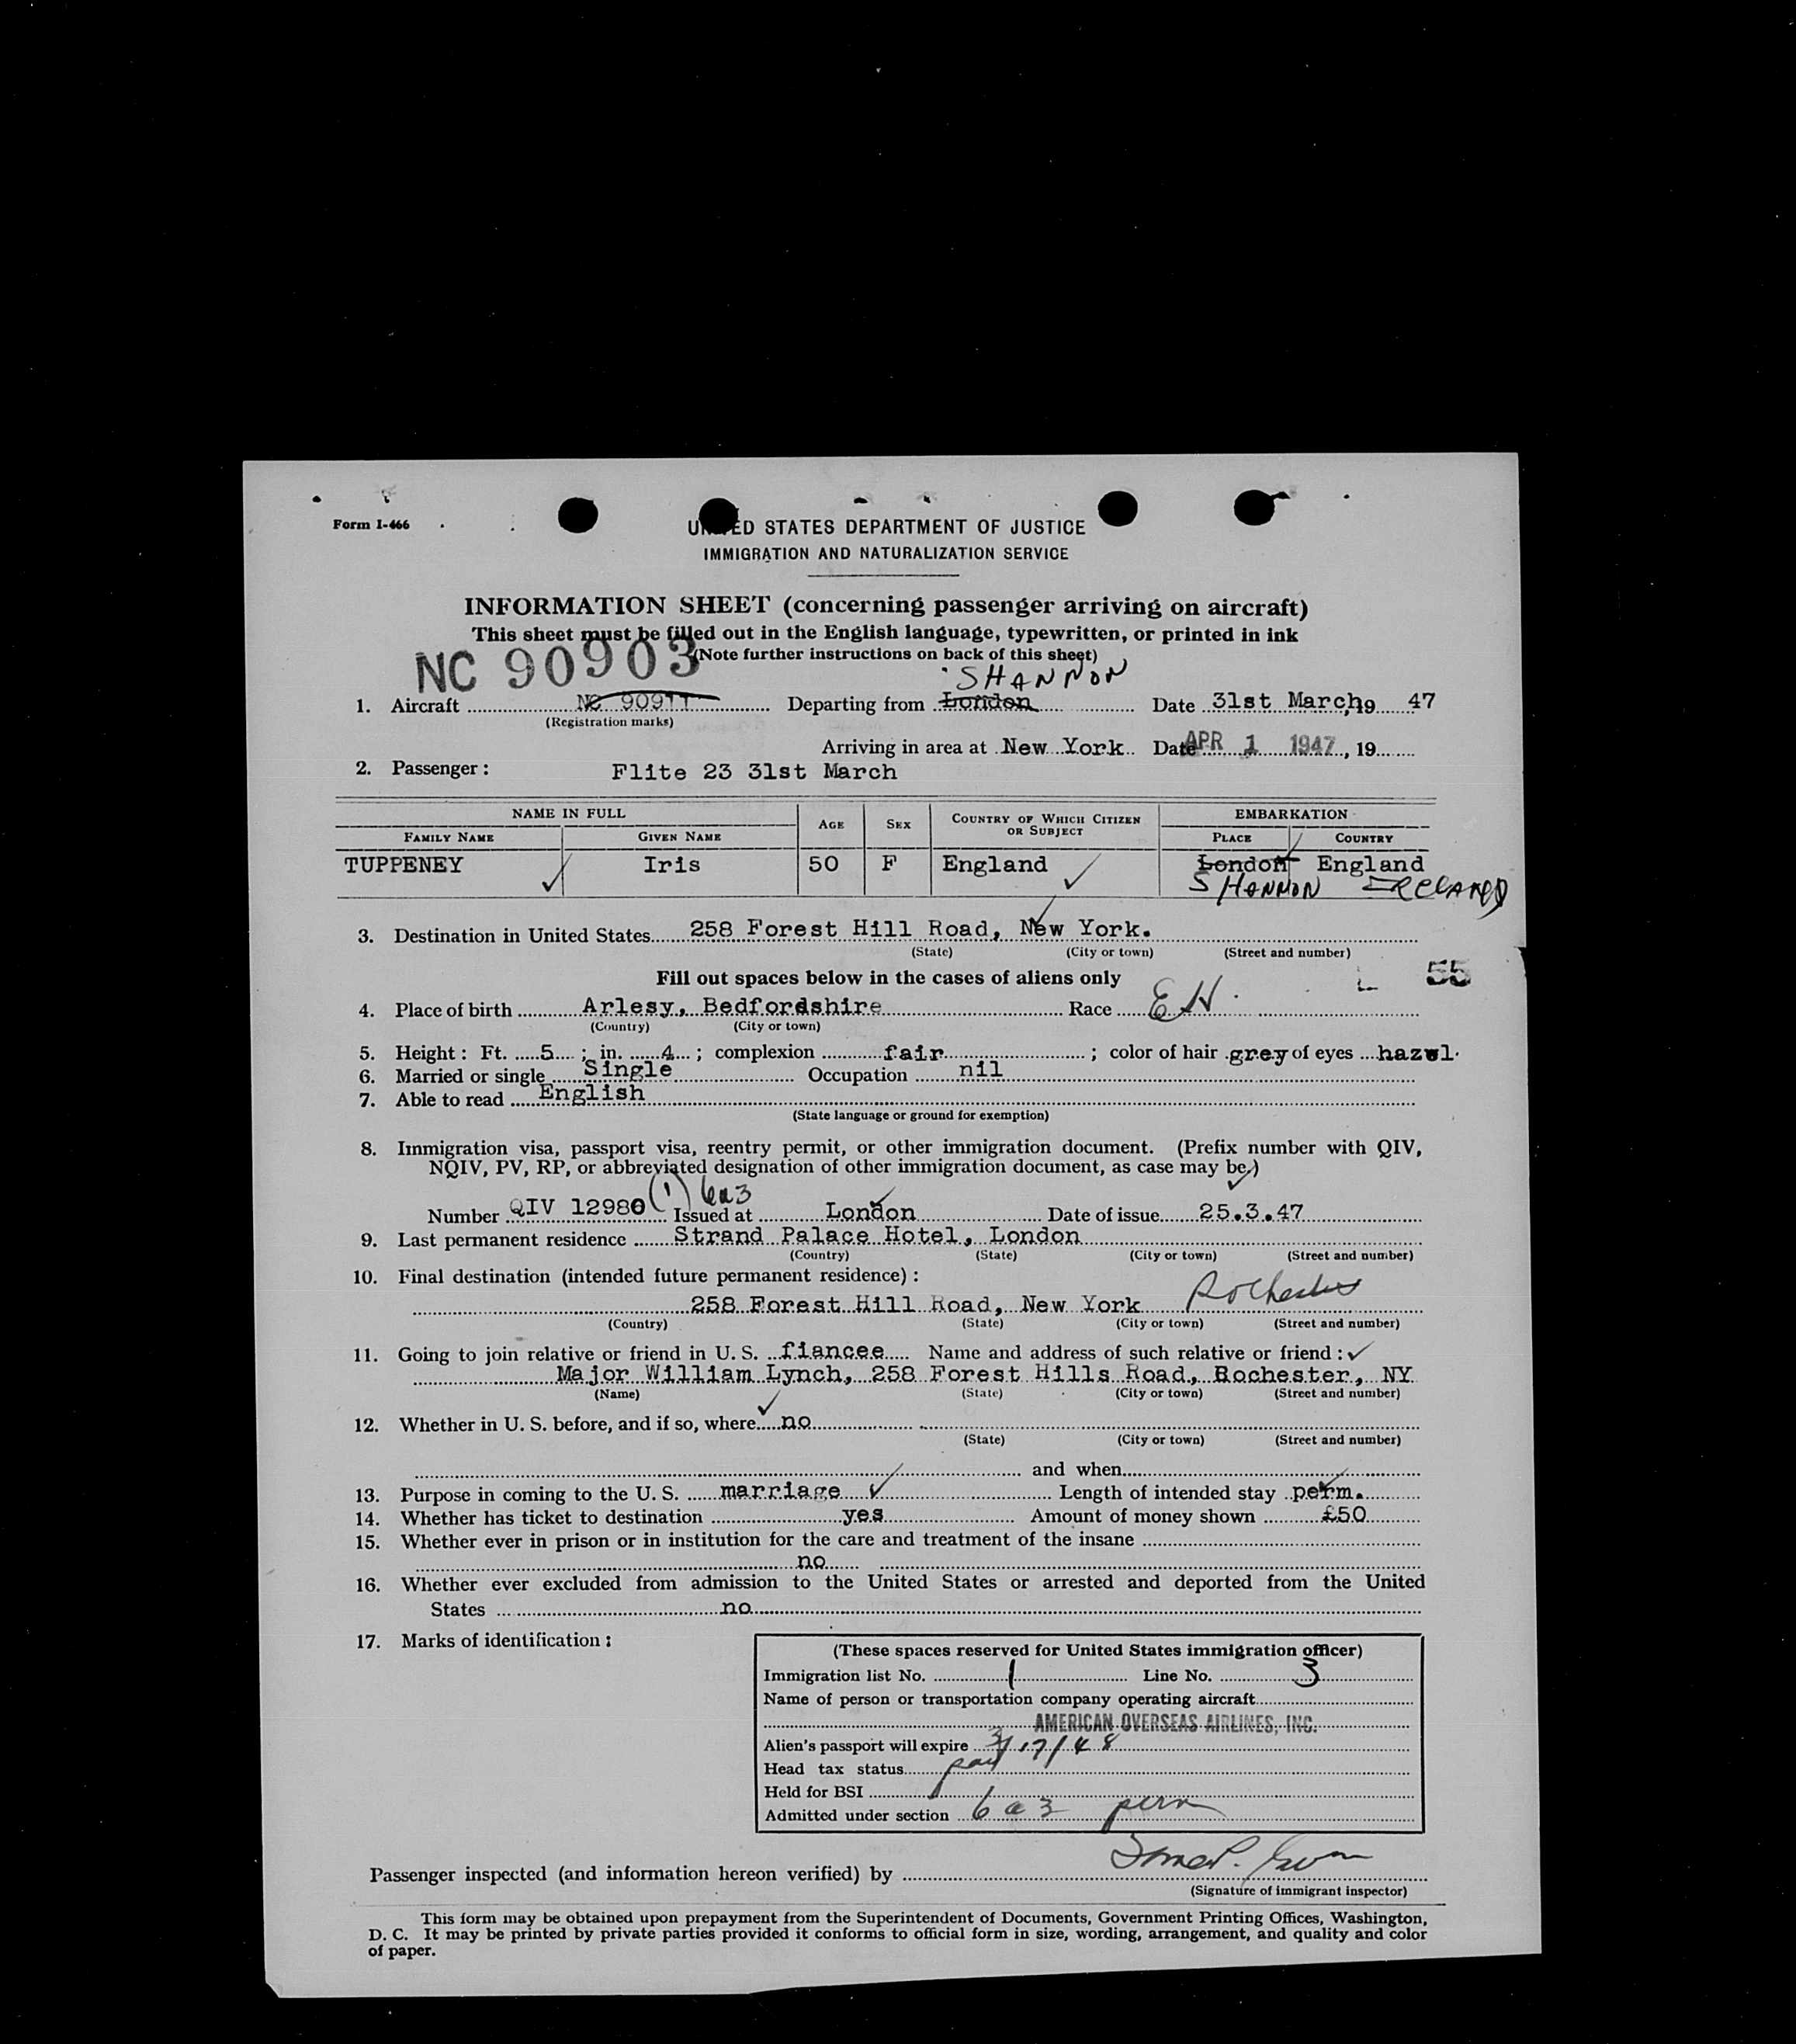 Form I-466
UNITED STATES DEPARTMENT OF JUSTICE
IMMIGRATION AND NATURALIZATION SERVICE
INFORMATION SHEET (concerning passenger arriving on aircraft)
This sheet must be filled out in the English language, typewritten, or printed in ink
(Note further instructions on back of this sheet)
NC 90903
SHANNON
1. Aircraft NC 90911 Departing from London Date 31st March, 19 47
(Registration marks)
Arriving in area at New York Date APR 1 1947, 19
2. Passenger: Flite 23 31st March
NAME IN FULL AGE SEX COUNTRY OF WHICH CITIZEN OR SUBJECT EMBARKATION
FAMILY NAME GIVEN NAME PLACE COUNTRY
TUPPENEY Iris 50 F England London England
SHANNON IRELAND
3. Destination in United States 258 Forest Hill Road, New York.
(State) (City or town) (Street and number)
Fill out spaces below in the cases of aliens only 55
4. Place of birth Arlesy, Bedfordshire Race EN
(Country) (City or town)
5. Height: Ft. 5 ; in. 4 ; complexion fair ; color of hair grey of eyes hazel.
6. Married or single Single Occupation nil
7. Able to read English
(State language or ground for exemption)
8. Immigration visa, passport visa, reentry permit, or other immigration document. (Prefix number with QIV,
NQIV, PV, RP, or abbreviated designation of other immigration document, as case may be.)
(1) 6a3
Number QIV 12980 Issued at London Date of issue 25.3.47
9. Last permanent residence Strand Palace Hotel, London
(Country) (State) (City or town) (Street and number)
10. Final destination (intended future permanent residence):
258 Forest Hill Road, New York Rochester
(Country) (State) (City or town) (Street and number)
11. Going to join relative or friend in U. S. fiancee Name and address of such relative or friend:
Major William Lynch, 258 Forest Hills Road, Rochester, NY
(Name) (State) (City or town) (Street and number)
12. Whether in U. S. before, and if so, where no
(State) (City or town) (Street and number)
and when
13. Purpose in coming to the U. S. marriage Length of intended stay perm.
14. Whether has ticket to destination yes Amount of money shown £50
15. Whether ever in prison or in institution for the care and treatment of the insane
no
16. Whether ever excluded from admission to the United States or arrested and deported from the United
States no
17. Marks of identification:
(These spaces reserved for United States immigration officer)
Immigration list No. 1 Line No. 3
Name of person or transportation company operating aircraft
AMERICAN OVERSEAS AIRLINES, INC.
Alien's passport will expire 3/17/48
Head tax status
Held for BSI
Admitted under section 6a3 perm
Passenger inspected (and information hereon verified) by
(Signature of immigrant inspector)
This form may be obtained upon prepayment from the Superintendent of Documents, Government Printing Offices, Washington,
D. C. It may be printed by private parties provided it conforms to official form in size, wording, arrangement, and quality and color
of paper.